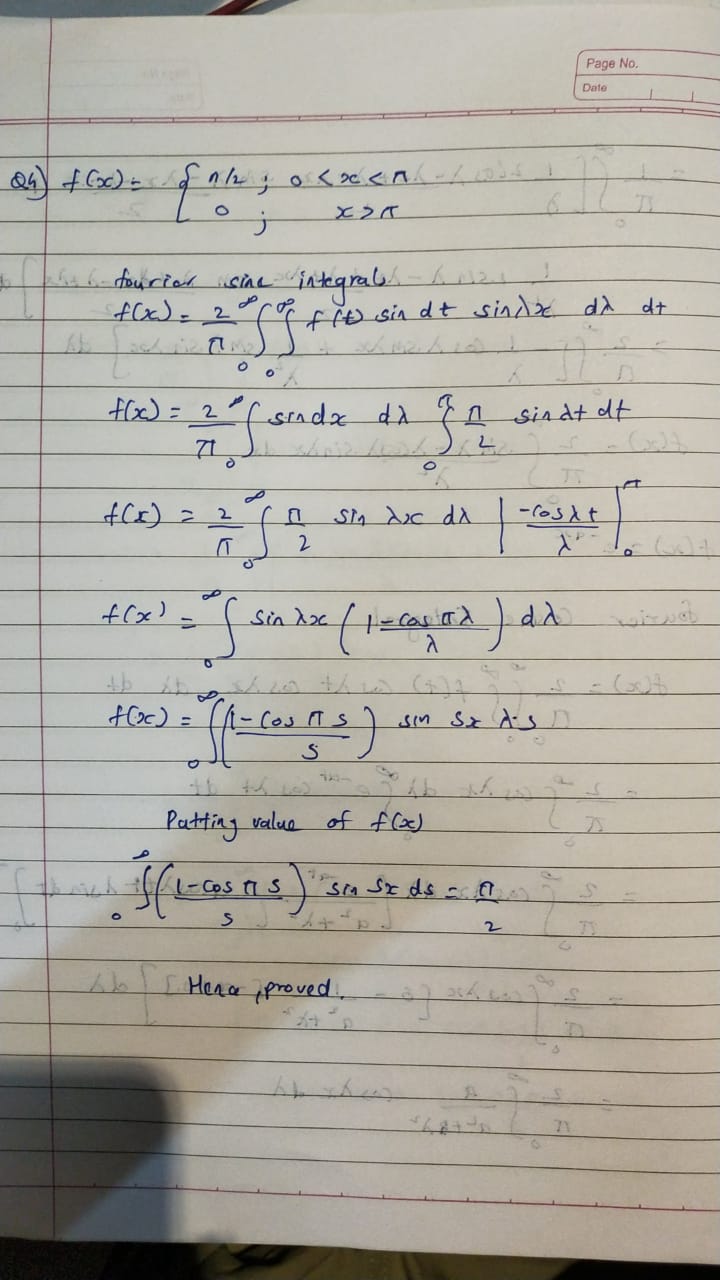 Page No.
Date
Q4) f(x) = { π/2 ; 0 < x < π
0 ; x > π
fourier sine integral
f(x) = 2/π ∫₀^∞ ∫₀^∞ f(t) sin dt sin λx dλ dt
f(x) = 2/π ∫₀^∞ sin dx dλ ∫₀^π π/2 sin λt dt
f(x) = 2/π ∫₀^∞ π/2 sin λx dλ | -cos λt / λ |₀^π
f(x) = ∫₀^∞ sin λx ( 1-cos πλ / λ ) dλ
f(x) = ∫₀^∞ ( 1-cos π s / s ) sin sx λ s
Putting value of f(x)
∫₀^∞ ( 1-cos π s / s ) sin sx ds = π/2
Hence, proved.